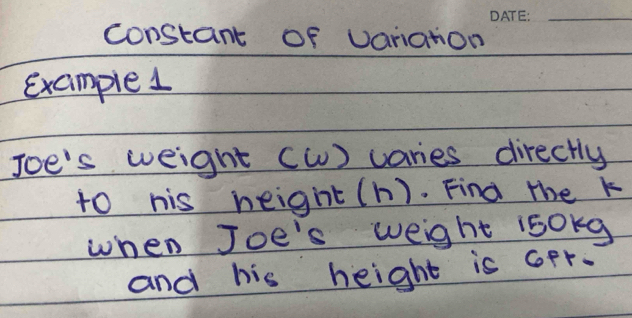 DATE:
Constant Of Variation
Example 1
Joe's weight (w) varies directly
to his height (h). Find the k
when Joe's weight 150kg
and his height is 6ft.